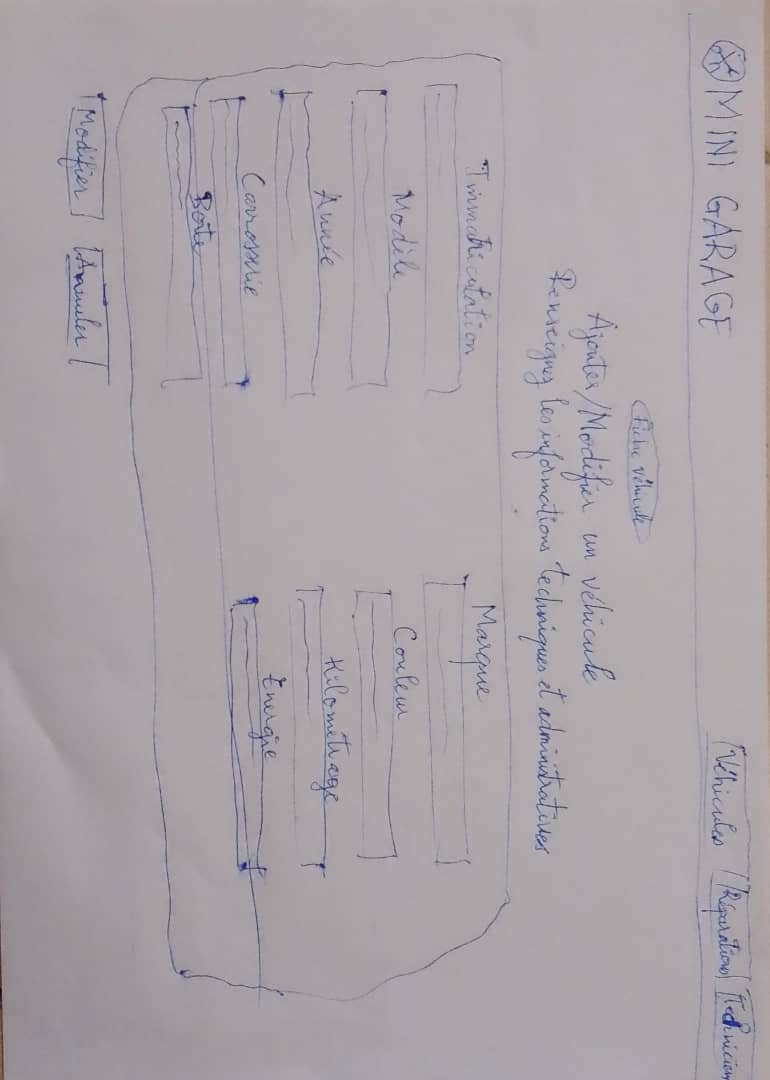 MINI GARAGE
Véhicules
Réparations
Technicien
Fiche véhicule
Ajouter/Modifier un véhicule
Renseignez les informations techniques et administratives
Immatriculation
Marque
Modèle
Couleur
Année
Kilométrage
Carrosserie
Énergie
Boîte
Modifier
Annuler